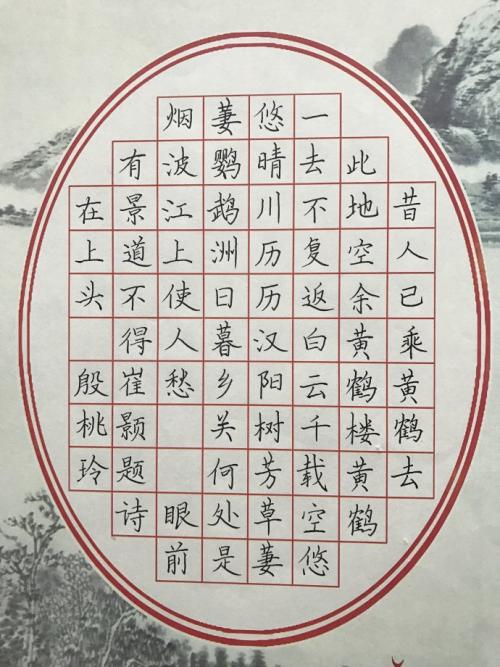 昔人已乘黄鹤去
此地空余黄鹤楼黄鹤
一去不复返白云千载空悠
悠晴川历历汉阳树芳草萋
萋鹦鹉洲日暮乡关何处是
烟波江上使人愁 眼前
有景道不得崔颢题诗
在上头 殷桃玲